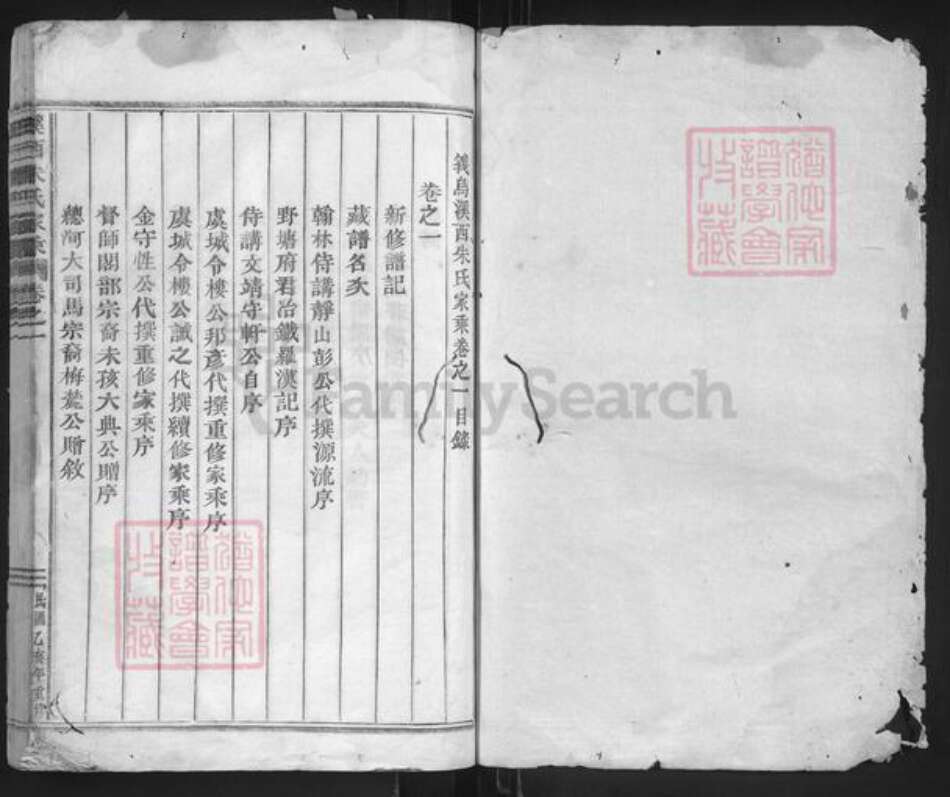 義烏溪西朱氏家乘卷之一目錄
卷之一
新修譜記
藏譜名次
翰林侍講靜山彭公代撰源流序
野塘府君冶鐵羅漢記序
侍講文靖守軒公自序
虞城令樓公邦彥代撰重修家乘序
虞城令樓公誠之代撰續修家乘序
金守性公代撰重修家乘序
督師閣部宗裔未孩大典公贈序
總河大司馬宗裔梅麓公贈敘
溪西朱氏家乘
卷之一
民國乙亥年重修
FamilySearch